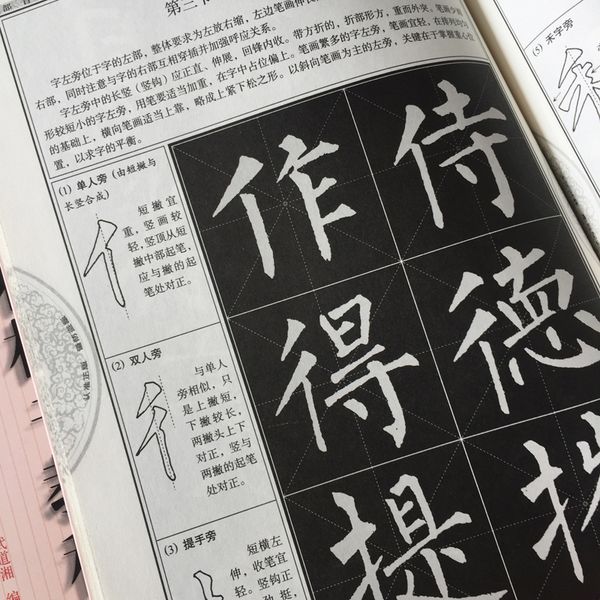 第三
字左旁位于字的左部，整体要求为左放右缩，左边笔画伸
右部，同时注意与字的右部互相穿插并加强呼应关系。
字左旁中的长竖（竖钩）应正直、伸展，回锋内收。带方折的，折部形方，重而外突。笔画少
形较短小的字左旁，用笔要适当加重，在字中占位偏上。笔画繁多的字左旁，笔画宜轻，在排列均匀
的基础上，横向笔画适当上靠，略成上紧下松之形。以斜向笔画为主的左旁，关键在于掌握重心位
置，以求字的平衡。
(1) 单人旁（由短撇与
长竖合成）
短撇宜
重，竖画较
轻，竖顶从短
撇中部起笔，
应与撇的起
笔处对正。
(2) 双人旁
与单人
旁相似，只
是上撇短，
下撇较长，
两撇头上下
对正，竖与
两撇的起笔
处对正。
(3) 提手旁
短横左
伸，收笔宜
轻。竖钩正
作 侍
得 德
提
(5) 禾字旁
代道湘 编